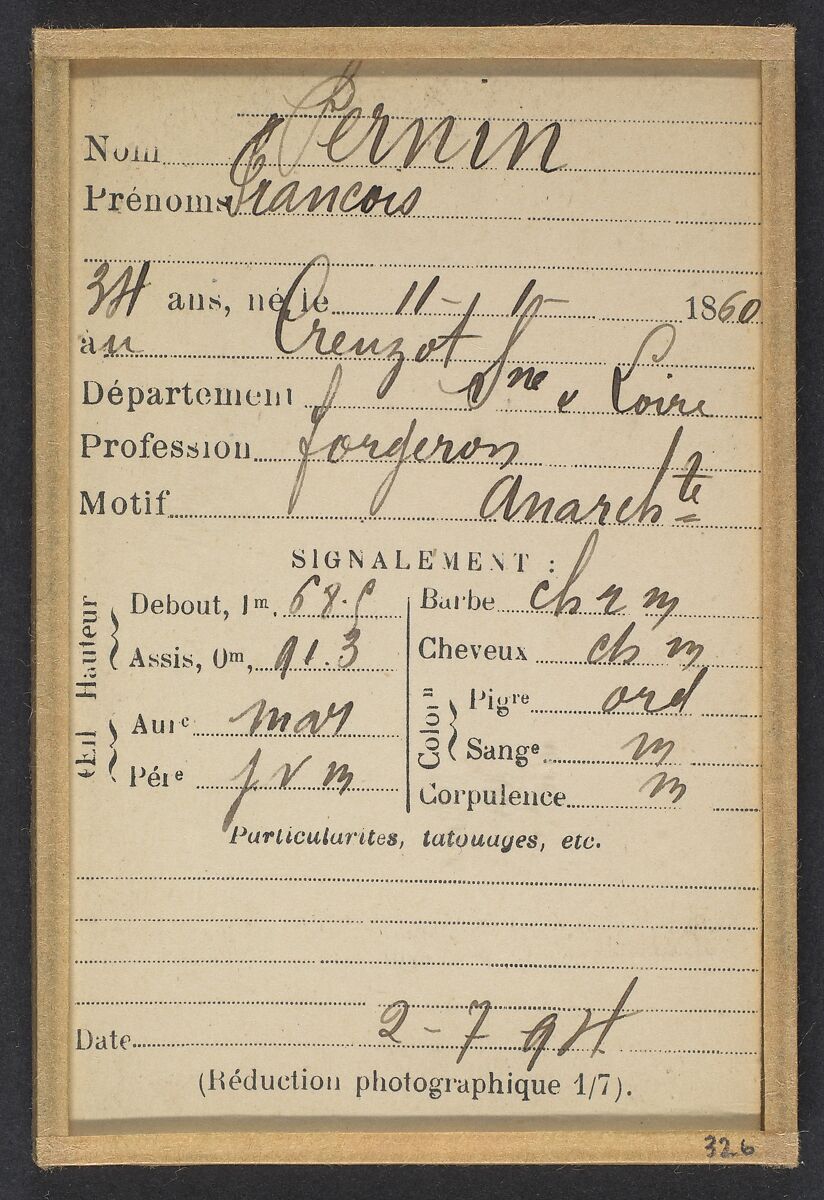 Nom Pernin
Prénoms François
34 ans, né le 11 - 1 - 1860
au Creuzot
Département Sne & Loire
Profession forgeron
Motif Anarchte
SIGNALEMENT :
Hauteur
Debout, 1m, 68.5
Assis, 0m, 91.3
Œil
Aure mar
Pére j. v m
Barbe ch r m
Cheveux ch m
Colorn
Pigre ord
Sange m
Corpulence m
Particularités, tatouages, etc.
Date 2 - 7 94
(Réduction photographique 1/7).
326